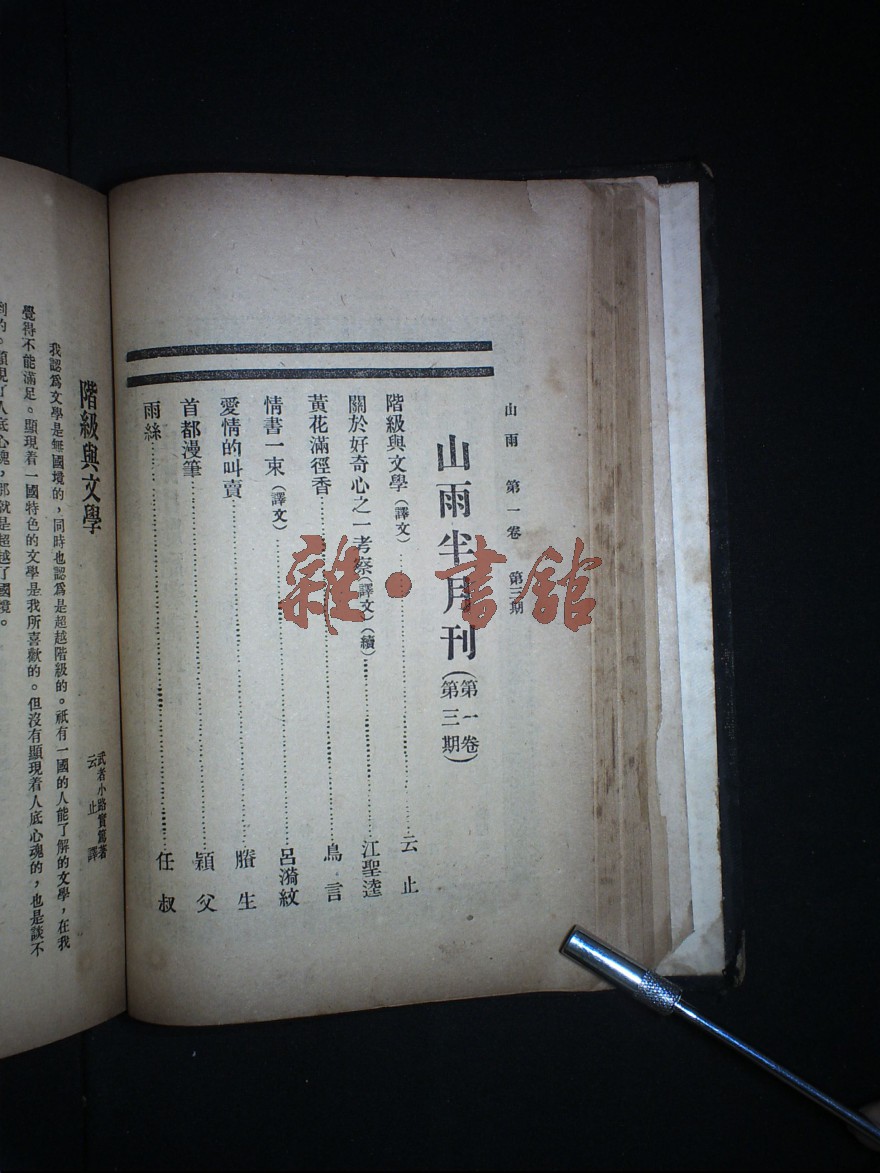 山雨 第一卷 第三期
山雨半月刊(第一卷 第三期)
階級與文學(譯文)……云止
關於好奇心之一考察(譯文)(續)……江聖逵
黃花滿徑香……鳥言
情書一束(譯文)……呂漪紋
愛情的叫賣……賸生
首都漫筆……穎父
雨絲……任叔
雜·書館
階級與文學
武者小路實篤著
云止譯
我認爲文學是無國境的,同時也認爲是超越階級的。祇有一國的人能了解的文學,在我
覺得不能滿足。顯現着一國特色的文學是我所喜歡的。但沒有顯現着人底心魂的,也是談不
到的。顯現了人底心魂,那就是超越了國境。